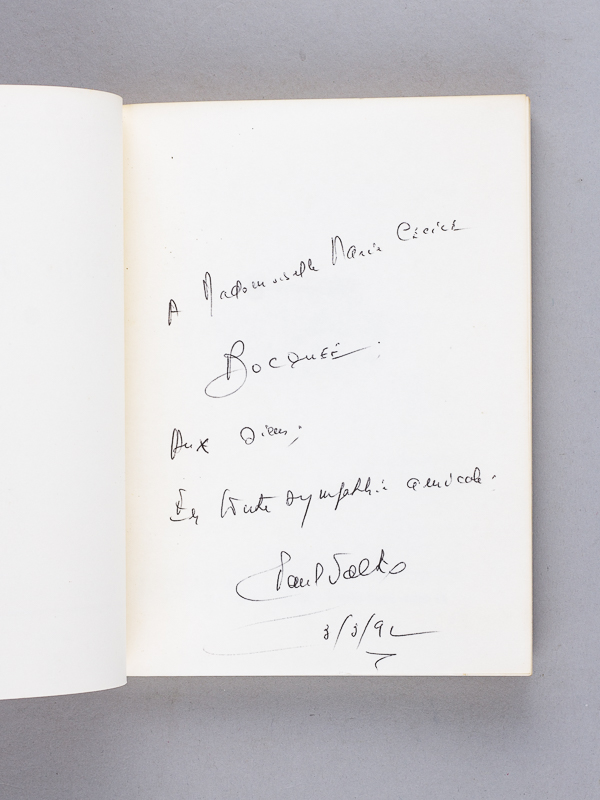 A Mademoiselle Marie Cécile
BOCQUÉE.
Aux siens,
En toute sympathie amicale.
Paul
3/3/92